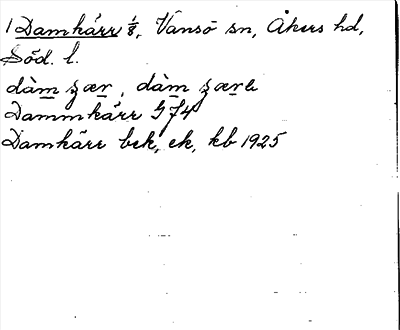 1 Damkärr 1/8, Vansö sn, Åkers hd,
Söd. l.
dàm̲ ʒær̲, dàm̲ ʒær̲e
Dammkärr G 74
Damkärr bek, ek, kb 1925